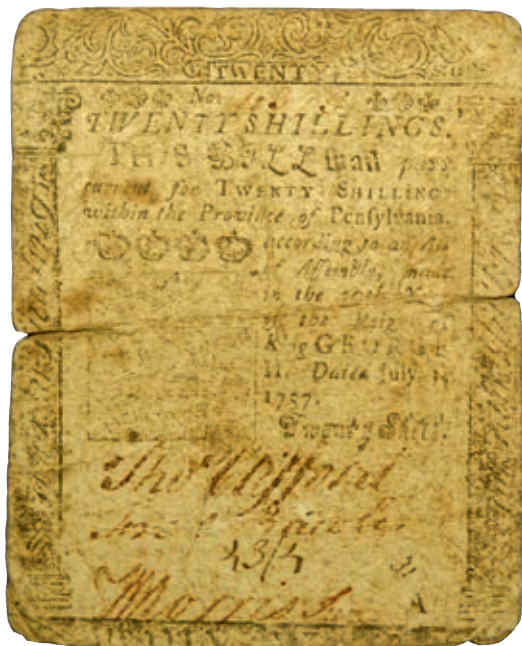 TWENTY
No.
TWENTY SHILLINGS.
THIS BILL shall pass
current for TWENTY SHILLINGS
within the Province of Pensylvania,
according to an Act
of Assembly, made
in the 30th Year
of the Reign of
King GEORGE
II. Dated July 1,
1757.
Twenty Shill.
Thos Clifford
Morris